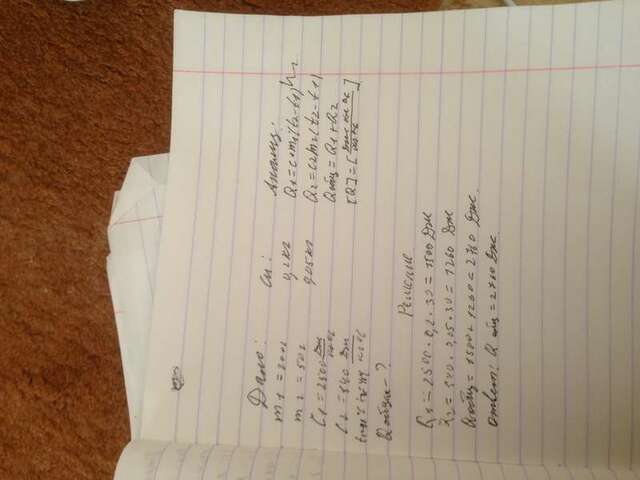 Дано:
m1 = 200г
m2 = 50г
C1 = 2500 Дж/кг°C
C2 = 840 Дж/кг°C
Qобщ – ?
Си:
0,2 кг
0,05 кг
Анализ:
Q1 = c1m1(t2-t1)
Q2 = c2m2(t2-t1)
Qобщ = Q1 + Q2
Решение
Q1 = 2500 · 0,2 · 30 = 1500 Дж
Q2 = 840 · 0,05 · 30 = 1260 Дж
Qобщ = 1500 + 1260 = 2760 Дж.
Ответ: Q общ = 2760 Дж.